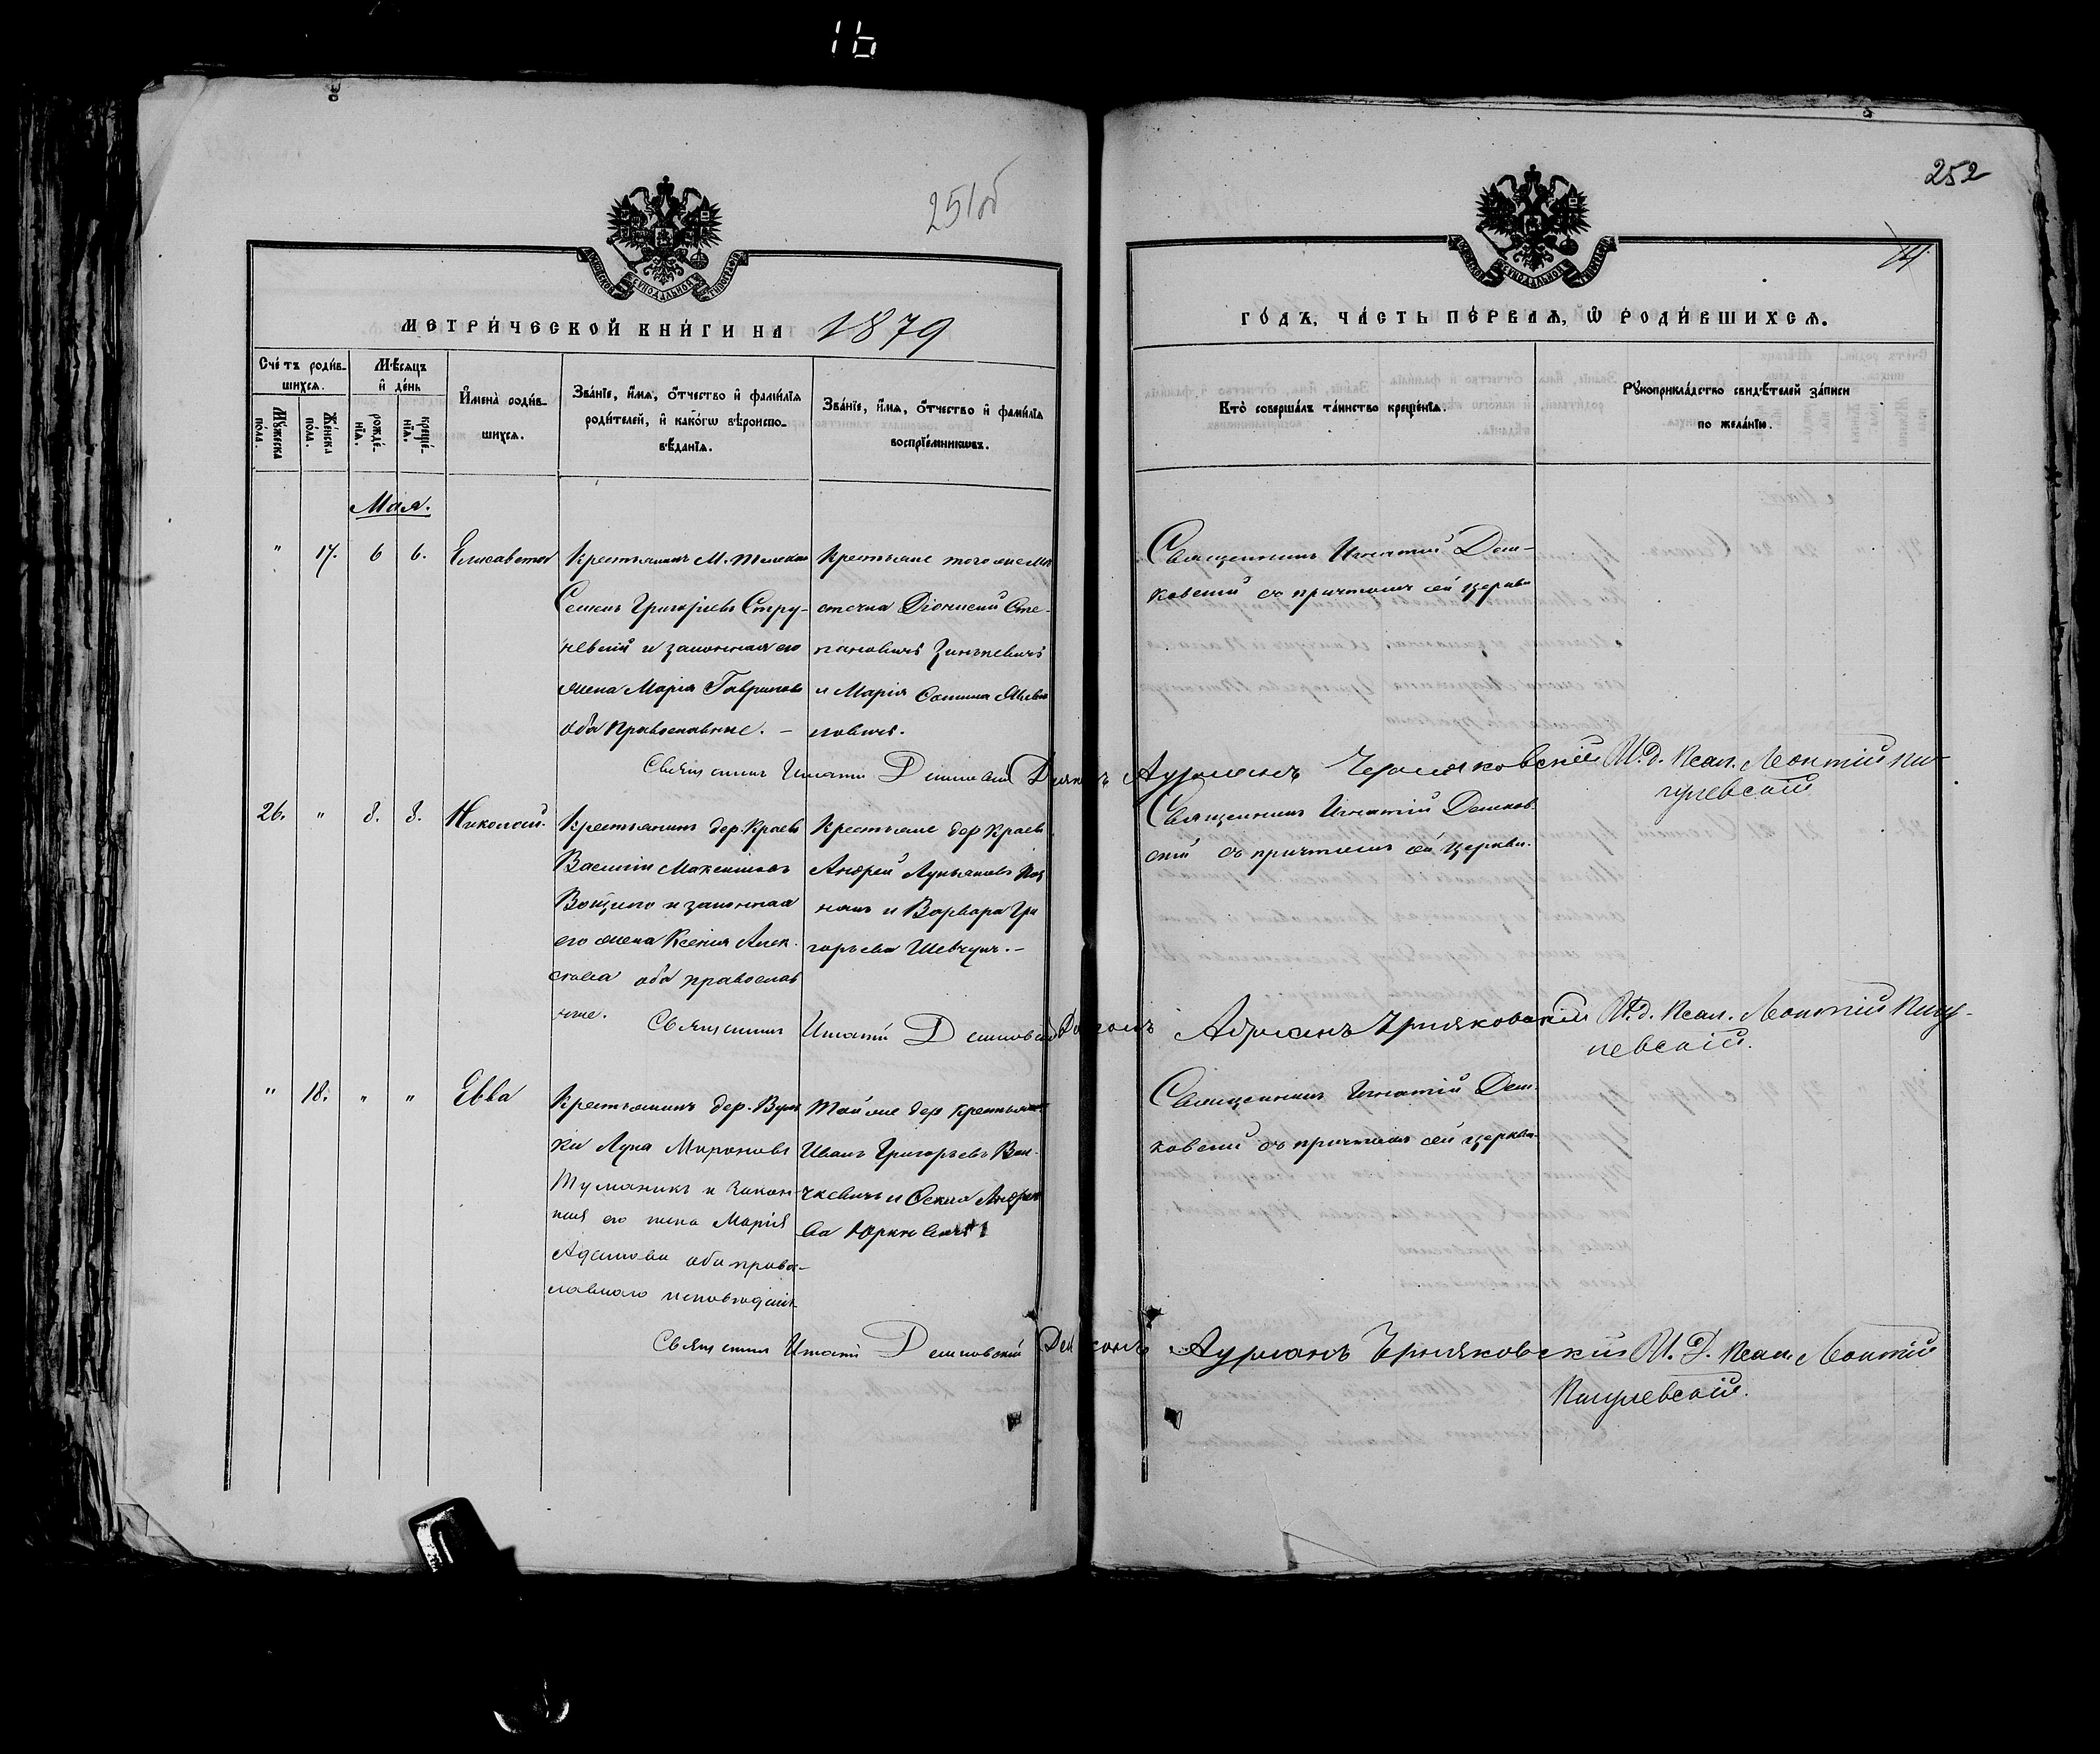 16
251об
252
МОСКОВСКОЙ СѴНОДАЛЬНОЙ ТИПОГРАФІИ
МОСКОВСКОЙ СѴНОДАЛЬНОЙ ТИПОГРАФІИ
МЕТРИ́ЧЕСКОЙ КНИ́ГИ НА 1879
ГО́ДЪ, ЧА́СТЬ ПЕ́РВАѦ, Ѽ РОДИ́ВШИХСѦ.
Сче́тъ роди́в-
шихсѧ.
Мꙋ́жеска
по́ла.
Же́нска
по́ла.
Мѣ́сѧцъ
и҆ де́нь
рожде́-
нїѧ.
креще́-
нїѧ.
И҆мена̀ роди́в-
шихсѧ.
Зва́нїе, и҆́мѧ, ѻ҆́тчество и҆ фами́лїѧ
роди́телей, и҆ како́гѡ вѣроиспо-
вѣ́данїѧ.
Зва́нїе, и҆́мѧ, ѻ҆́тчество и҆ фами́лїѧ
воспрїе́мникѡвъ.
Кто̀ соверша́лъ та́инство креще́нїѧ.
Рꙋкоприкла́дство свидѣ́телей за́писи
по жела́нїю.
Мая.
" 17. 6 6. Елисавета
Крестьянинъ М.
Семенъ Григоріевъ Стру-
невскій и законная его
жена Марія Гаврилова
оба Православные. –
Крестьяне тогоже мѣ
стечка Діонисій Сте-
пановичъ
и Марія
новичъ.
Священникъ Игнатій Деш-
ковскій съ причтомъ сей церкви
Священникъ Игнатій Дешковскій Діаконъ Адріанъ Черняковскій И.д. Псал. Леонтій Пи-
гулевскій
26. " 8. 8. Николай.
Крестьянинъ дер. Краевъ
Василій Максимовъ
Войцехо и законная
его жена Ксенія Алек-
сѣева оба православ
ные.
Крестьяне дер Краевъ
Андрей Лукьяновъ
и Варвара Гри
горьева Шевчукъ. –
Священникъ Игнатій Дешков-
скій съ причтомъ сей церкви.
Священникъ Игнатій Дешковскій Діаконъ Адріанъ Черняковскій И.д. Псал. Леонтій Пигу-
левскій.
" 18. " " Евва
Крестьянинъ дер.
ки Лука Мироновъ
Туманикъ и закон-
ная его жена Марія
Адамова оба право-
славнаго исповѣданія
Той же дер крестьяне
Иванъ Григорьевъ
чкевичъ и Фекла Андрее
ва Юркевичъ
Священникъ Игнатій Деш-
ковскій съ причтомъ сей церкви
Священникъ Игнатій Дешковскій Діаконъ Адріанъ Черняковскій И.Д. Псал. Леонтій
Пигулевскій.